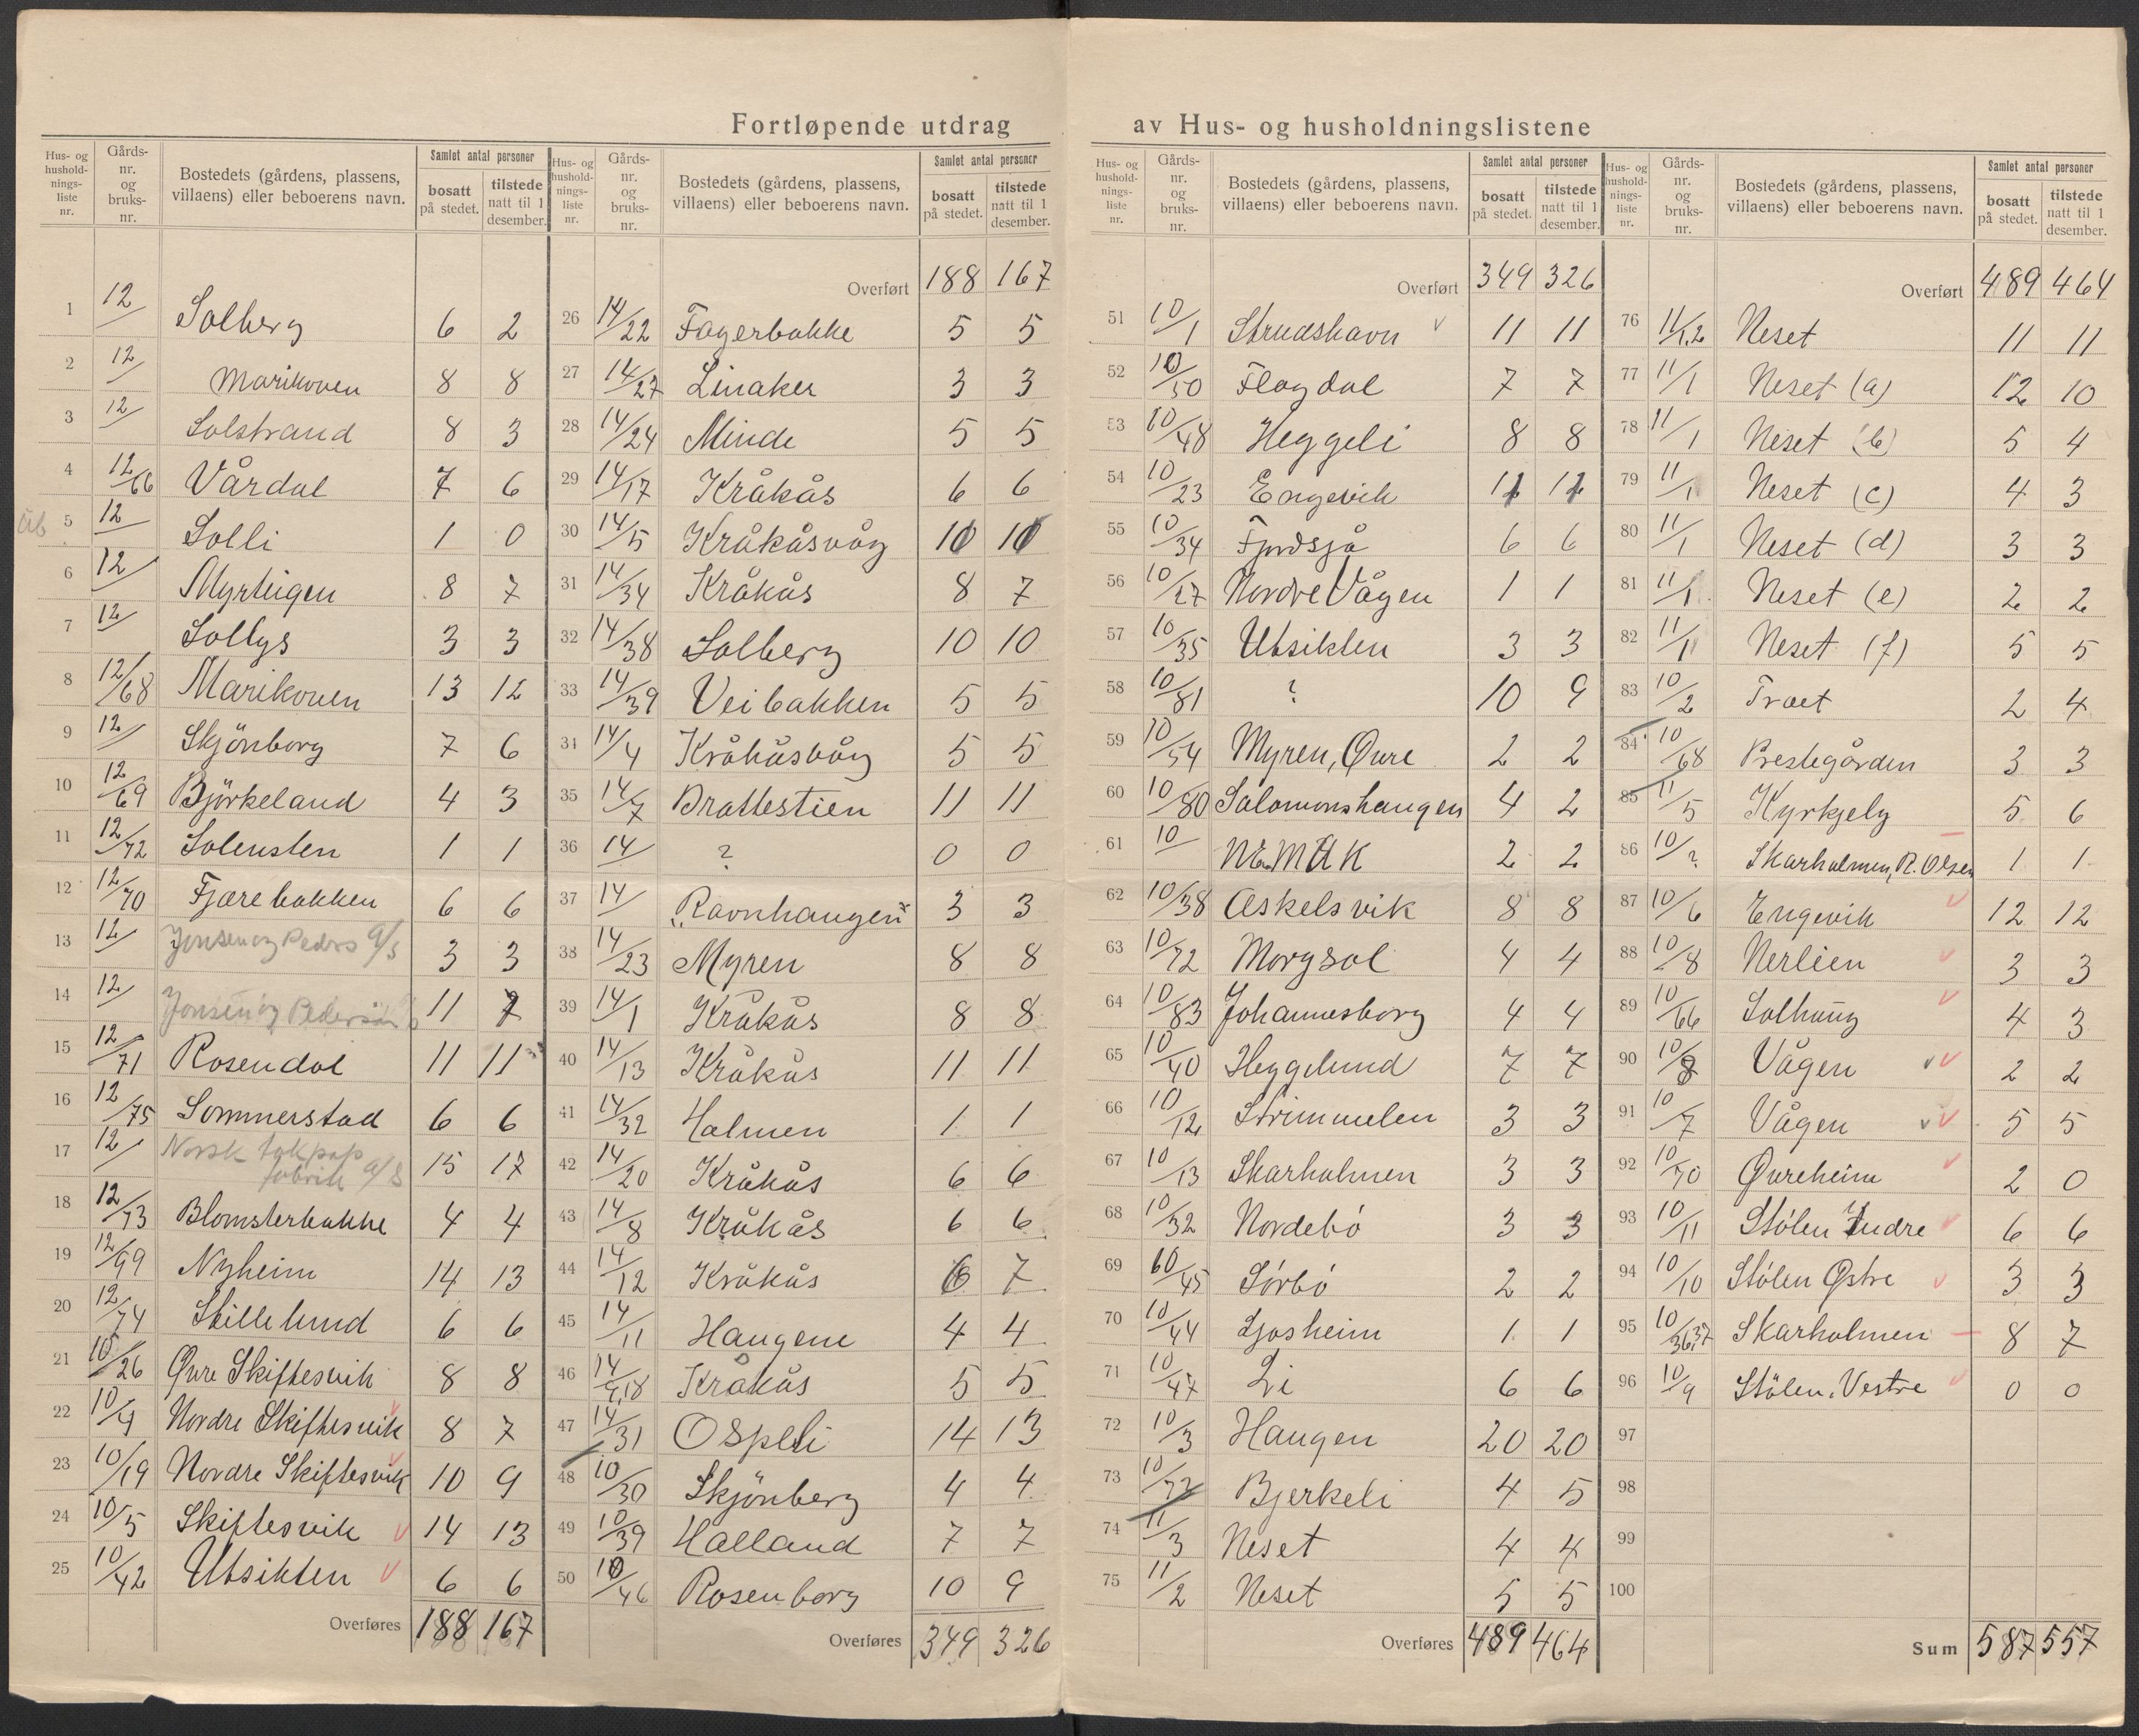 Fortløpende utdrag av Hus- og husholdningslistene
Hus- og hushold-nings-liste nr. Gårds-nr. og bruks-nr. Bostedets (gårdens, plassens, villaens) eller beboerens navn. Samlet antal personer bosatt på stedet. tilstede natt til 1 desember.
1 12/ Solberg 6 2
2 12/ Marikoven 8 8
3 12/ Solstrand 8 3
4 12/66 Vårdal 7 6
5 12 Solli 1 0
6 12/ Myrteigen 8 7
7 12/ Sollys 3 3
8 12/68 Marikoven 13 12
9 12/ Skjönborg 7 6
10 12/69 Björkeland 4 3
11 12/72 Solensten 1 1
12 12/70 Fjærebakken 6 6
13 12/ Jonsen og Peders A/S 3 3
14 12/ Jonsen og Pedersen 11 7
15 12/71 Rosendal 11 11
16 12/75 Sommerstad 6 6
17 12/ Norsk takpap
fabrik A/S 15 17
18 12/73 Blomsterbakke 4 4
19 12/99 Nyheim 14 13
20 12/74 Skillelund 6 6
21 10/26 Øvre Skiftesvik 8 8
22 10/4 Nordre Skiftesvik 8 7
23 10/19 Nordre Skiftesvik 10 9
24 10/5 Skiftesvik 14 13
25 10/42 Utsikten 6 6
Overføres 188 167
Hus- og hushold-nings-liste nr. Gårds-nr. og bruks-nr. Bostedets (gårdens, plassens, villaens) eller beboerens navn. Samlet antal personer bosatt på stedet. tilstede natt til 1 desember.
Overført 188 167
26 14/22 Fagerbakke 5 5
27 14/27 Linaker 3 3
28 14/24 Minde 5 5
29 14/17 Kråkås 6 6
30 14/5 Kråkåsvåg 10 10
31 14/34 Kråkås 8 7
32 14/38 Solberg 10 10
33 14/39 Veibakken 5 5
34 14/4 Kråkåsvåg 5 5
35 14/7 Brattestien 11 11
36 14/ ? 0 0
37 14/ "Ravnhaugen" 3 3
38 14/23 Myren 8 8
39 14/1 Kråkås 8 8
40 14/13 Kråkås 11 11
41 14/32 Holmen 1 1
42 14/20 Kråkås 6 6
43 14/8 Kråkås 6 6
44 14/12 Kråkås 6 7
45 14/11 Haugene 4 4
46 14/9,18 Kråkås 5 5
47 14/31 Ospeli 14 13
48 10/30 Skjönberg 4 4
49 10/39 Halland 7 7
50 10/46 Rosenborg 10 9
Overføres 349 326
Hus- og hushold-nings-liste nr. Gårds-nr. og bruks-nr. Bostedets (gårdens, plassens, villaens) eller beboerens navn. Samlet antal personer bosatt på stedet. tilstede natt til 1 desember.
Overført 349 326
51 10/1 Strudshavn 11 11
52 10/50 Flagdal 7 7
53 10/48 Heggeli 8 8
54 10/23 Engevik 11 11
55 10/34 Fjordsjå 6 6
56 10/27 Nordre Vågen 1 1
57 10/35 Utsikten 3 3
58 10/81 ? 10 9
59 10/54 Myren, Øvre 2 2
60 10/80 Salomonshaugen 4 2
61 10 2 2
62 10/38 Askelsvik 8 8
63 10/72 Morgsol 4 4
64 10/83 Johannesborg 4 4
65 10/40 Heggelund 7 7
66 10/12 Strimmelen 3 3
67 10/13 Skarholmen 3 3
68 10/32 Nordebö 3 3
69 10/45 Sörbö 2 2
70 10/44 Ljosheim 1 1
71 10/47 Li 6 6
72 10/3 Haugen 20 20
73 10/77 Bjerkeli 4 5
74 11/3 Neset 4 4
75 11/2 Neset 5 5
Overføres 489 464
Hus- og hushold-nings-liste nr. Gårds-nr. og bruks-nr. Bostedets (gårdens, plassens, villaens) eller beboerens navn. Samlet antal personer bosatt på stedet. tilstede natt til 1 desember.
Overført 489 464
76 11/1,2 Neset 11 11
77 11/1 Neset (a) 12 10
78 11/1 Neset (b) 5 4
79 11/1 Neset (c) 4 3
80 11/1 Neset (d) 3 3
81 11/1 Neset (e) 2 2
82 11/1 Neset (f) 5 5
83 10/2 Træt 2 4
84 10/68 Prestegården 3 3
85 11/5 Kyrkjelg 5 6
86 10/? Skarholmen, R. Olsen 1 1
87 10/6 Engevik 12 12
88 10/8 Nerlien 3 3
89 10/66 Solhaug 4 3
90 10/8 Vågen 2 2
91 10/7 Vågen 5 5
92 10/70 Øvreheim 2 0
93 10/11 Stölen Indre 6 6
94 10/10 Stölen Østre 3 3
95 10/36,37 Skarholmen 8 7
96 10/9 Stölen, Vestre 0 0
97
98
99
100
Sum 587 557